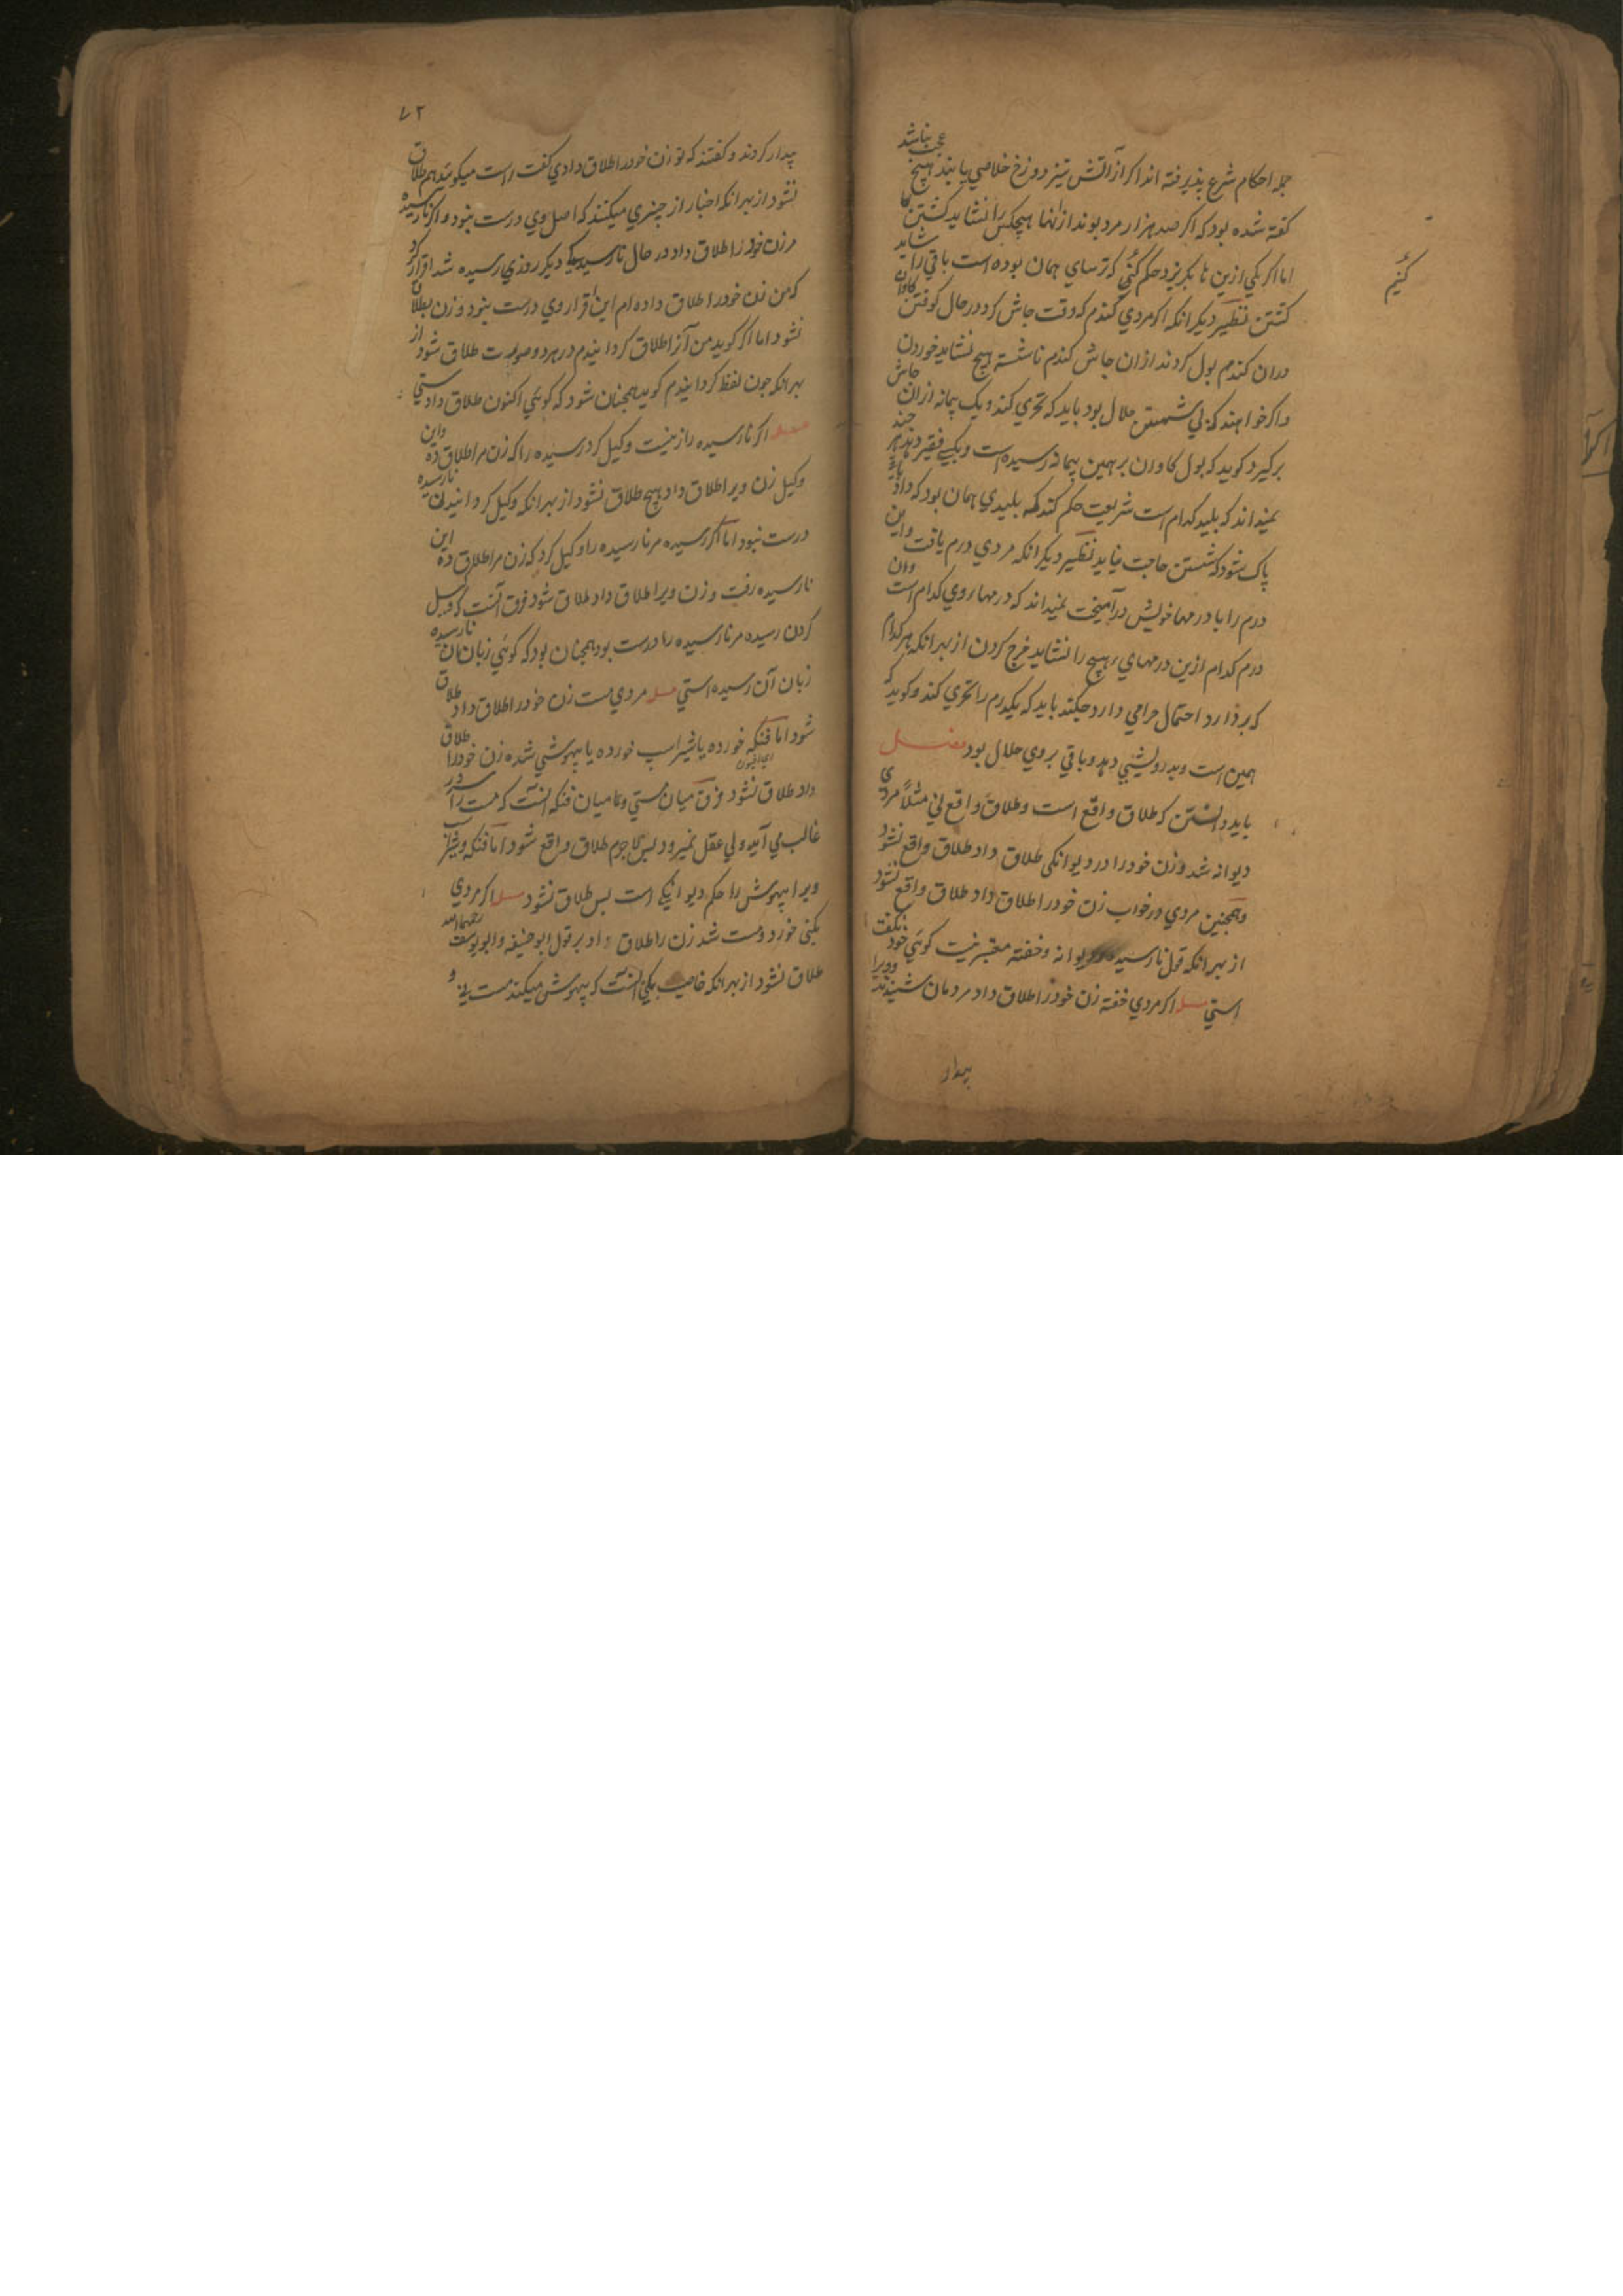 جمله احکام شرع پذیرفته اند اکر از آتش تیز دوزخ خلاصی یابند هیچ عجب نباشد
کفته شده بود که اکر صد هزار مرد بوند از آنها هیچکس را نشاید کشتن
اما اکر یکی ازین ها بکریزد حکم کنی که ترسای همان بوده است باقی را شاید
کنیم
کشتن نظیر دیکر انکه اکر مردی کندم که وقت جاش کرد در حال کوفتن کاوان
دران کندم بول کردند ازان جاش کندم ناشسته هیچ نشاید خوردن
واکر خواهند که بی شستن حلال بود باید که تحری کند و یک پیمانه ازان جاش
برکیرد کوید که بول کاوان بر همین پیمانه رسیده است و بکسی فقیر دهد هر چند
نمیداند که پلید کدام است شریعت حکم کند که پلیدی همان بود که داد
پاک شود که شستن حاجت نیاید نظیر دیکر انکه مردی درم یافت واین
درم را با درمها خویش درآمیخت نمیداند که درمهاء وی کدام است وان
درم کدام ازین درمهای هیچ را نشاید خرج کردن از بهر انکه هر کدام
که بردارد احتمال حرامی دارد جکند باید که یکدرم را تحری کند و کوید که
همین است وبدرویشی دهد وباقی بروی حلال بود فصل
باید دانستن که طلاق واقع است وطلاق واقع نی مثلاً مردی
دیوانه شد وزن خود را در دیوانکی طلاق داد طلاق واقع نشود
وهمچنین مردی در خواب زن خود را طلاق داد طلاق واقع نشود
از بهر انکه قول نارسیده ودیوانه وخفته معتبر نیست کوئی خود نکفت
استی مسله اکر مردی خفته زن خود را طلاق داد مردمان شنیدند وویرا
بیدار
۷۲
بیدار کردند و کفتند که تو زن خود را طلاق دادی کفت راست میکوئید هم طلاق
نشود از بهر انکه اخبار از چیزی میکنند که اصل وی درست نبود واکر نارسیده
مرزن خود را طلاق داد در حال نارسیدکی دیکر روزی رسیده شد اقرار کرد
که من زن خود را طلاق داده ام این اقرار وی درست نبود وزن بطلاق
نشود اما اکر کوید من آنرا طلاق کردانیدم در هر دو صورت طلاق شود از
بهر انکه چون لفظ کردانیدم کوید همچنان شود که کوئی اکنون طلاق دادستی
مسله اکر نارسیده را زنیست وکیل کرد رسیده را که زن مرا طلاق ده واین
وکیل زن ویرا طلاق داد هیچ طلاق نشود از بهر انکه وکیل کردانیدن نارسیده
درست نبود اما اکر رسیده مر نارسیده را وکیل کرد که زن مرا طلاق ده این
نارسیده رفت و زن ویرا طلاق داد طلاق شود فرق آنست که وکیل
کردن رسیده مر نارسیده را درست بود همچنان بود که کوئی زبان آن نارسیده
زبان آن رسیده استی مسله مردی مست زن خود را طلاق داد طلاق
شود اما فنکه خورده یا شیر اسب خورده یا بیهوشی شده زن خود را طلاق
داد طلاق نشود فرق میان مستی و میان فنکه آنست که مست را در
غالب می آید ولی عقل نمیرود پس لاجرم طلاق واقع شود اما فنکه
ویرا بیهوش را حکم دیوانکی است پس طلاق نشود مسله اکر مردی
بکنی خورد ومست شد زن را طلاق داد بر قول ابو حنیفه وابو یوسف رحمهما الله
طلاق نشود از بهر انکه خاصیت بکنی آنست که بیهوشی میکند مست نی و